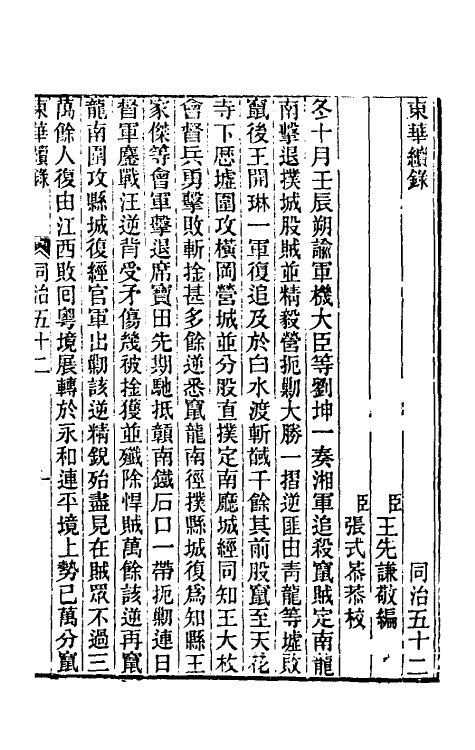 東華續錄　同治五十二
臣王先謙敬編
臣張式恭恭校
冬十月壬辰朔諭軍機大臣等劉坤一奏湘軍追殺竄賊定南龍
南擊退撲城股賊並精毅營扼勦大勝一摺逆匪由靑龍等墟敗
竄後王開琳一軍復追及於白水渡斬馘千餘其前股竄至天花
寺下歷墟圍攻橫岡營城並分股直撲定南廳城經同知王大枚
會督兵勇擊敗斬捡甚多餘逆悉竄龍南徑撲縣城復爲知縣王
家傑等會軍擊退席寶田先期馳抵贛南鐵石口一帶扼勦連日
督軍鏖戰汪逆背受矛傷幾被捡獲並殲除悍賊萬餘該逆再竄
龍南圍攻縣城復經官軍出勦該逆精銳殆盡見在賊眾不過三
萬餘人復由江西敗回粵境展轉於永和連平境上勢已萬分竄
東華續錄　同治五十二　一